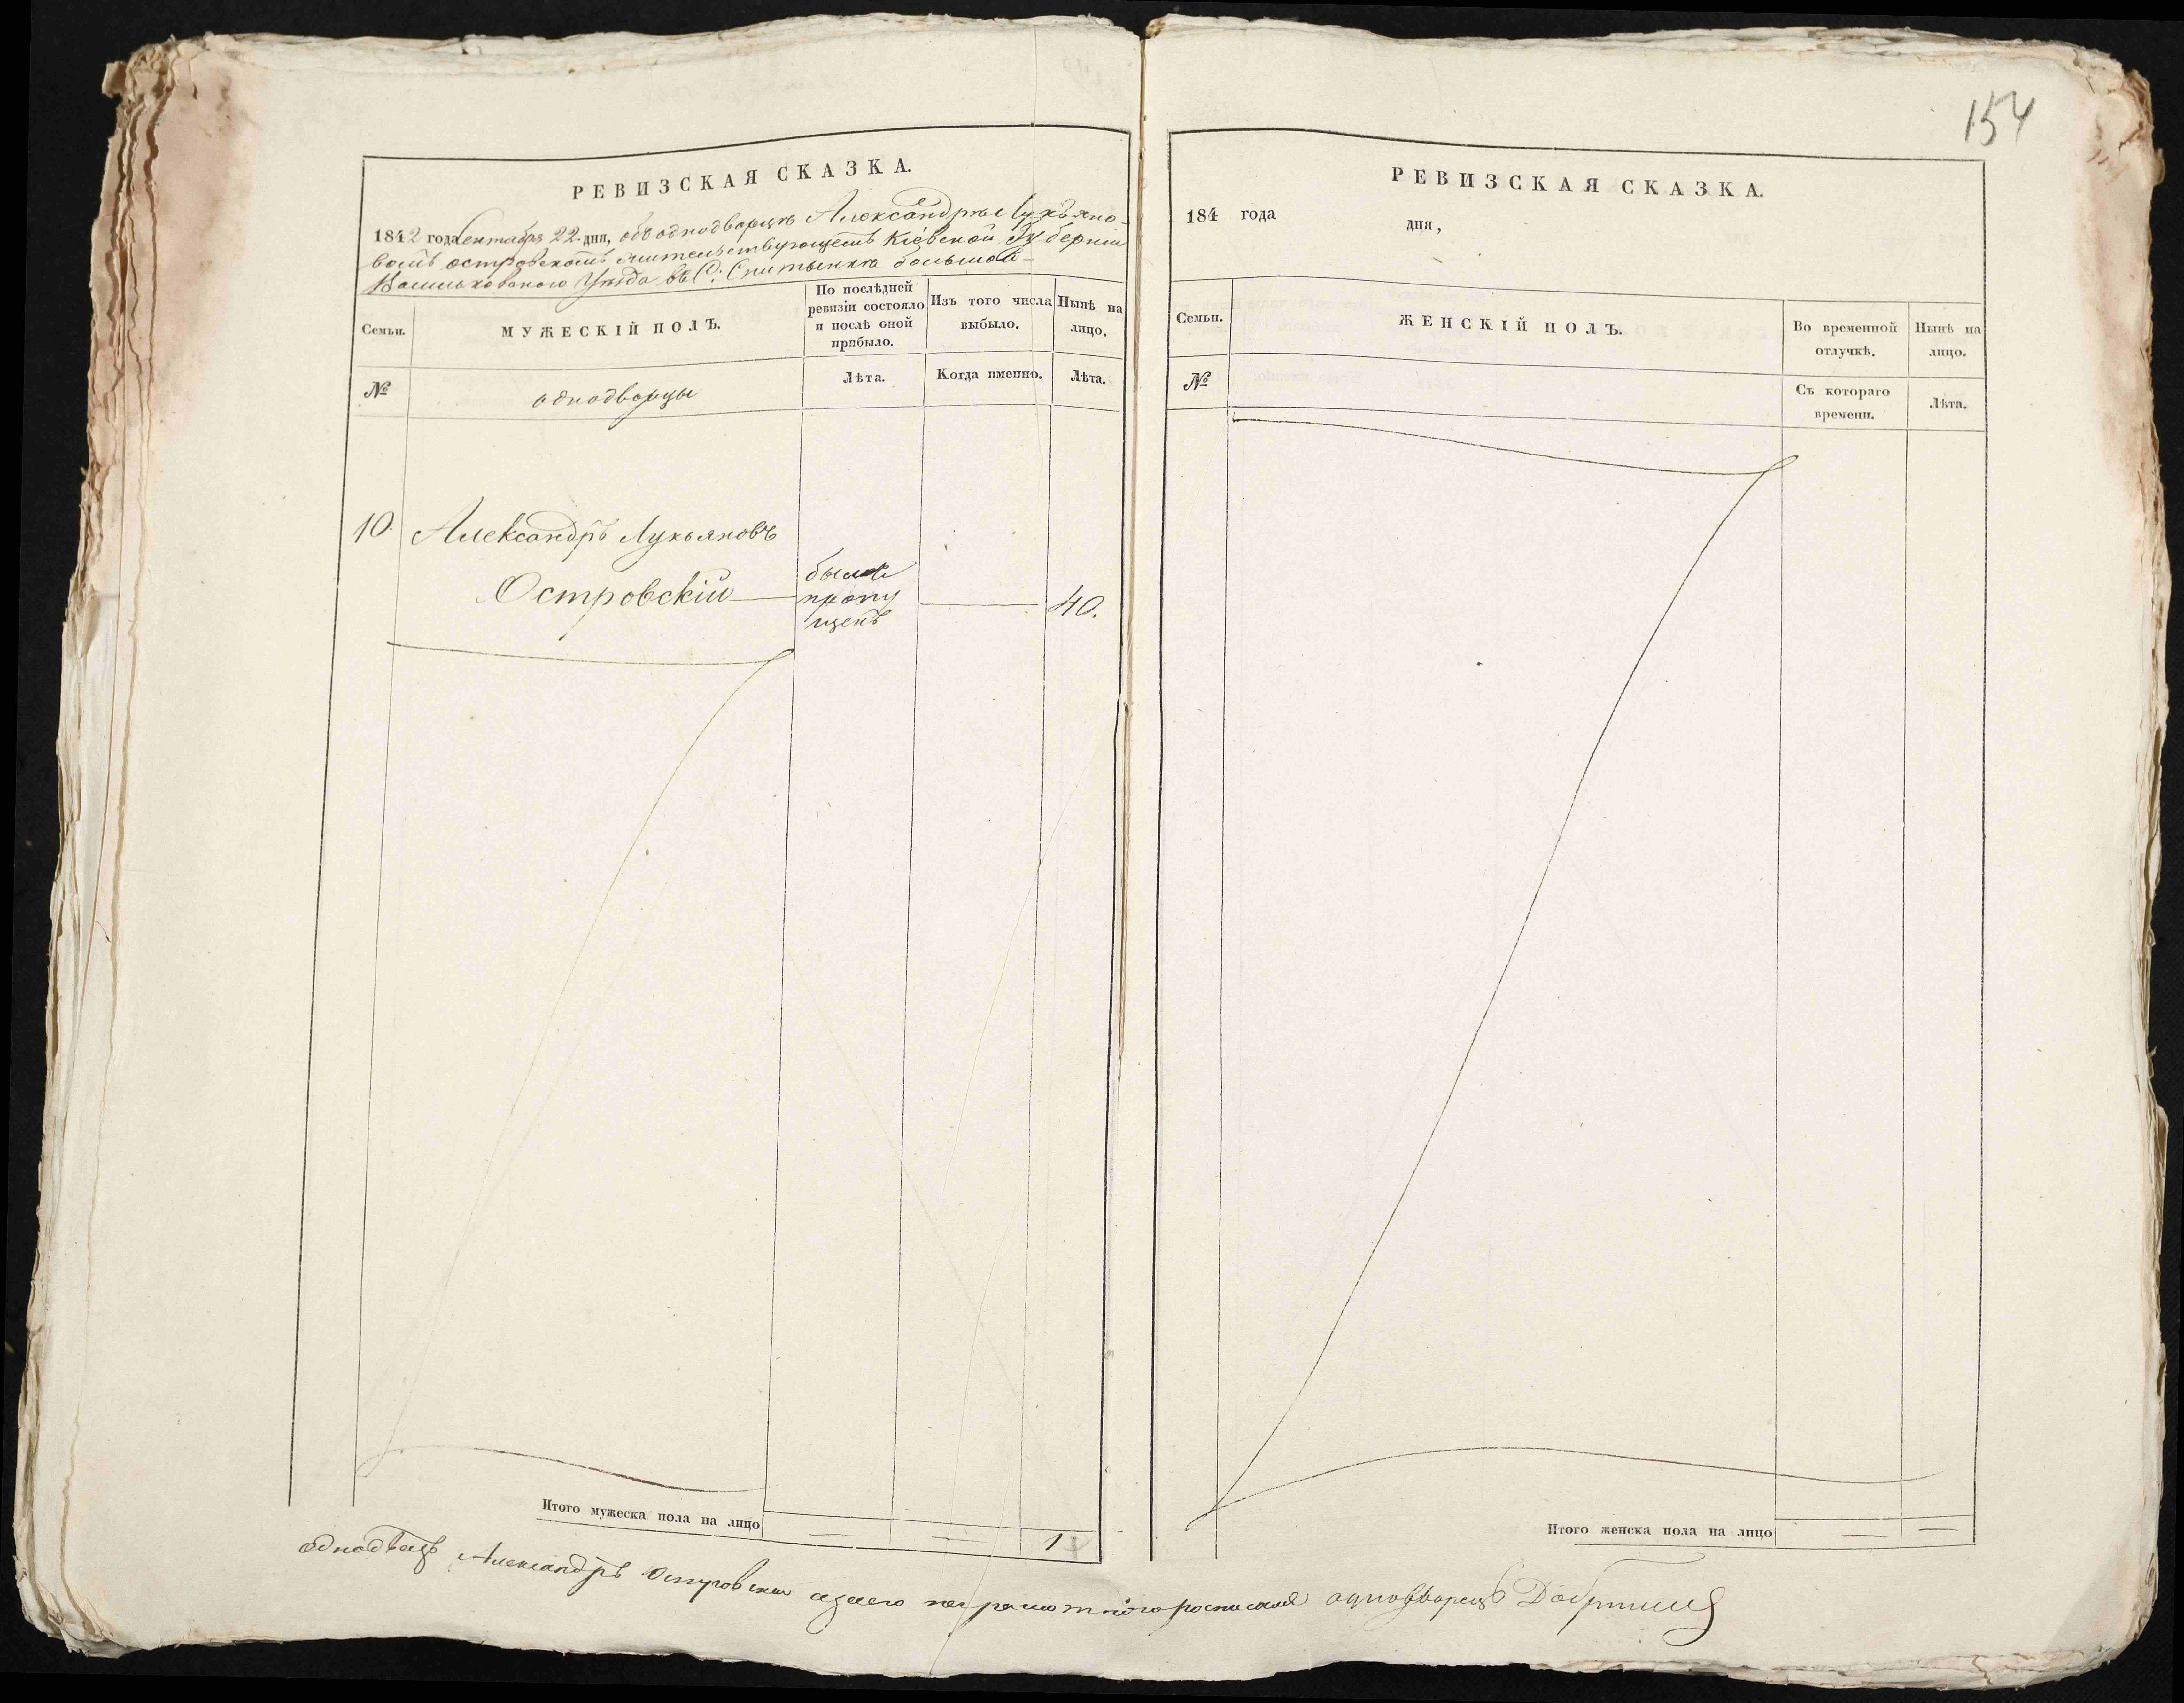 РЕВИЗСКАЯ СКАЗКА.
1842 года Сентября 22. дня, объ однодворцѣ Александрѣ Лукъяно-
вомъ Островскомъ жительствующемъ Кіевской Губерніи
Васильковского Уѣзда въ С. Снитынкѣ большой
Семьи.
МУЖЕСКІЙ ПОЛЪ.
По послѣдней ревизіи состояло и послѣ оной прибыло.
Изъ того числа выбыло.
Нынѣ на лицо.
№
однодворцы
Лѣта.
Когда именно.
Лѣта.
10. Александръ Лукьяновъ
Островскій
былъ
пропу
щенъ
40.
Итого мужеска пола на лицо
1
154
РЕВИЗСКАЯ СКАЗКА.
184 года
дня,
Семьи.
ЖЕНСКІЙ ПОЛЪ.
Во временной отлучкѣ.
Нынѣ на лицо.
№
Съ котораго времени.
Лѣта.
Итого женска пола на лицо
Александръ Островски неграмотного однодворецъ